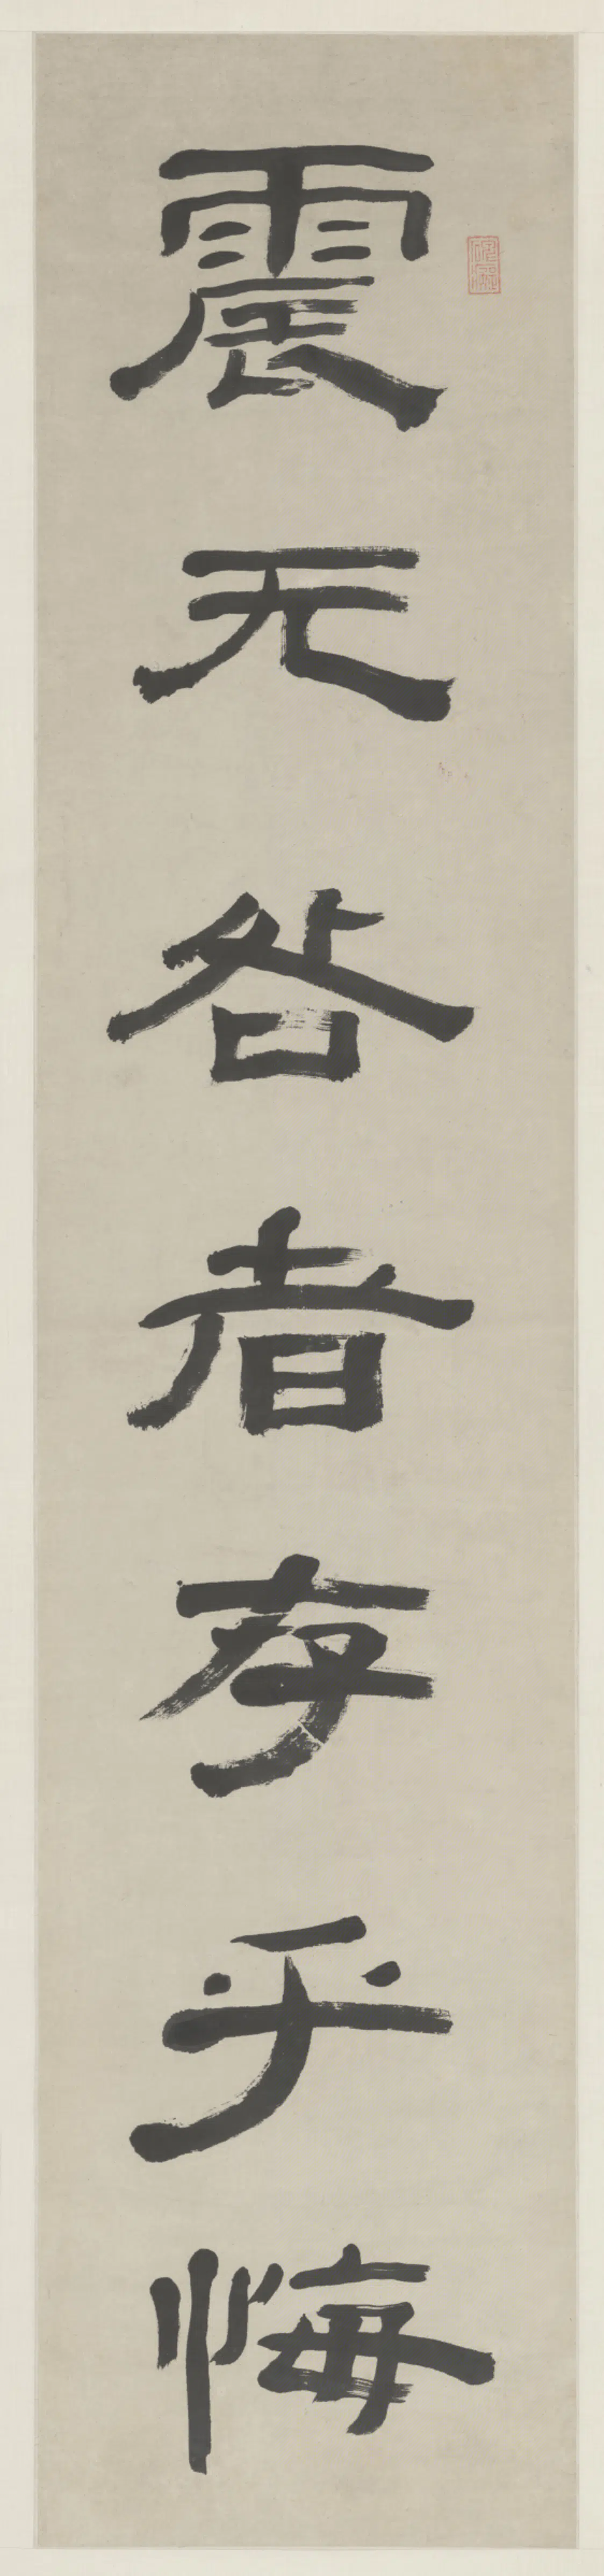 震无咎者存乎悔